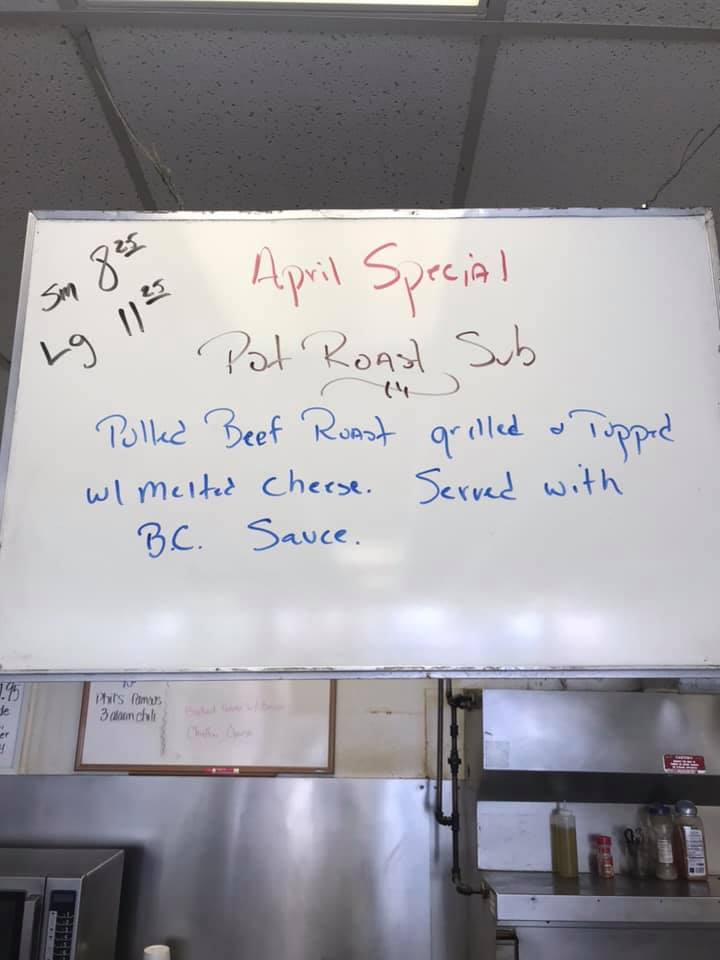 April Special
Sm 8 25
Lg 11 25
Pot Roast Sub
Pulled Beef Roast grilled & Topped
w/ melted cheese. Served with
B.C. Sauce.
Phil's Famous
3 alarm chili